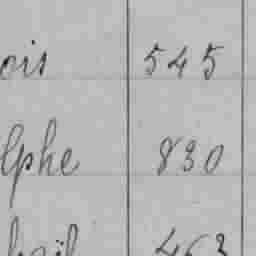 ois 545
lphe 830
463